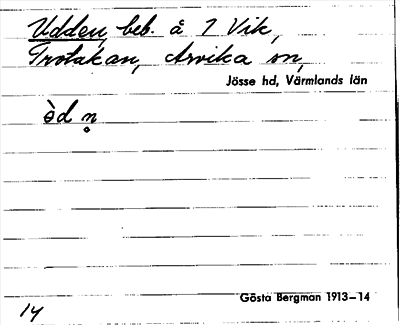 Udden, beb. å 7 Vik,
Trotakan, Arvika sn,
Jösse hd, Värmlands län
òd n̥
Gösta Bergman 1913–14
14